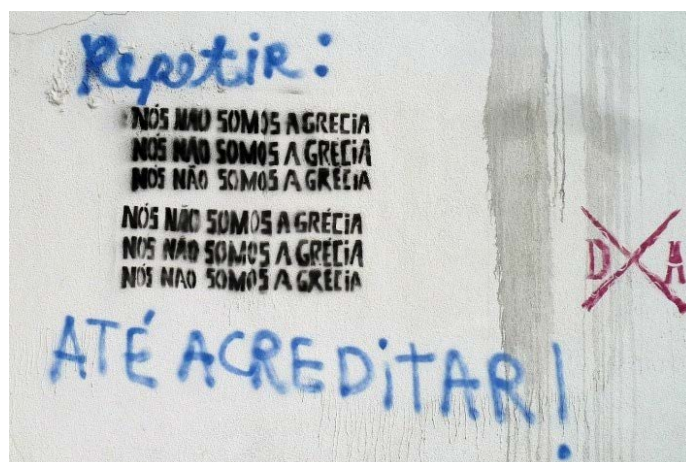 Repetir:
NÓS NÃO SOMOS A GRÉCIA
NÓS NÃO SOMOS A GRÉCIA
NÓS NÃO SOMOS A GRÉCIA
NÓS NÃO SOMOS A GRÉCIA
NÓS NÃO SOMOS A GRÉCIA
NÓS NÃO SOMOS A GRÉCIA
D X A
ATÉ ACREDITAR!